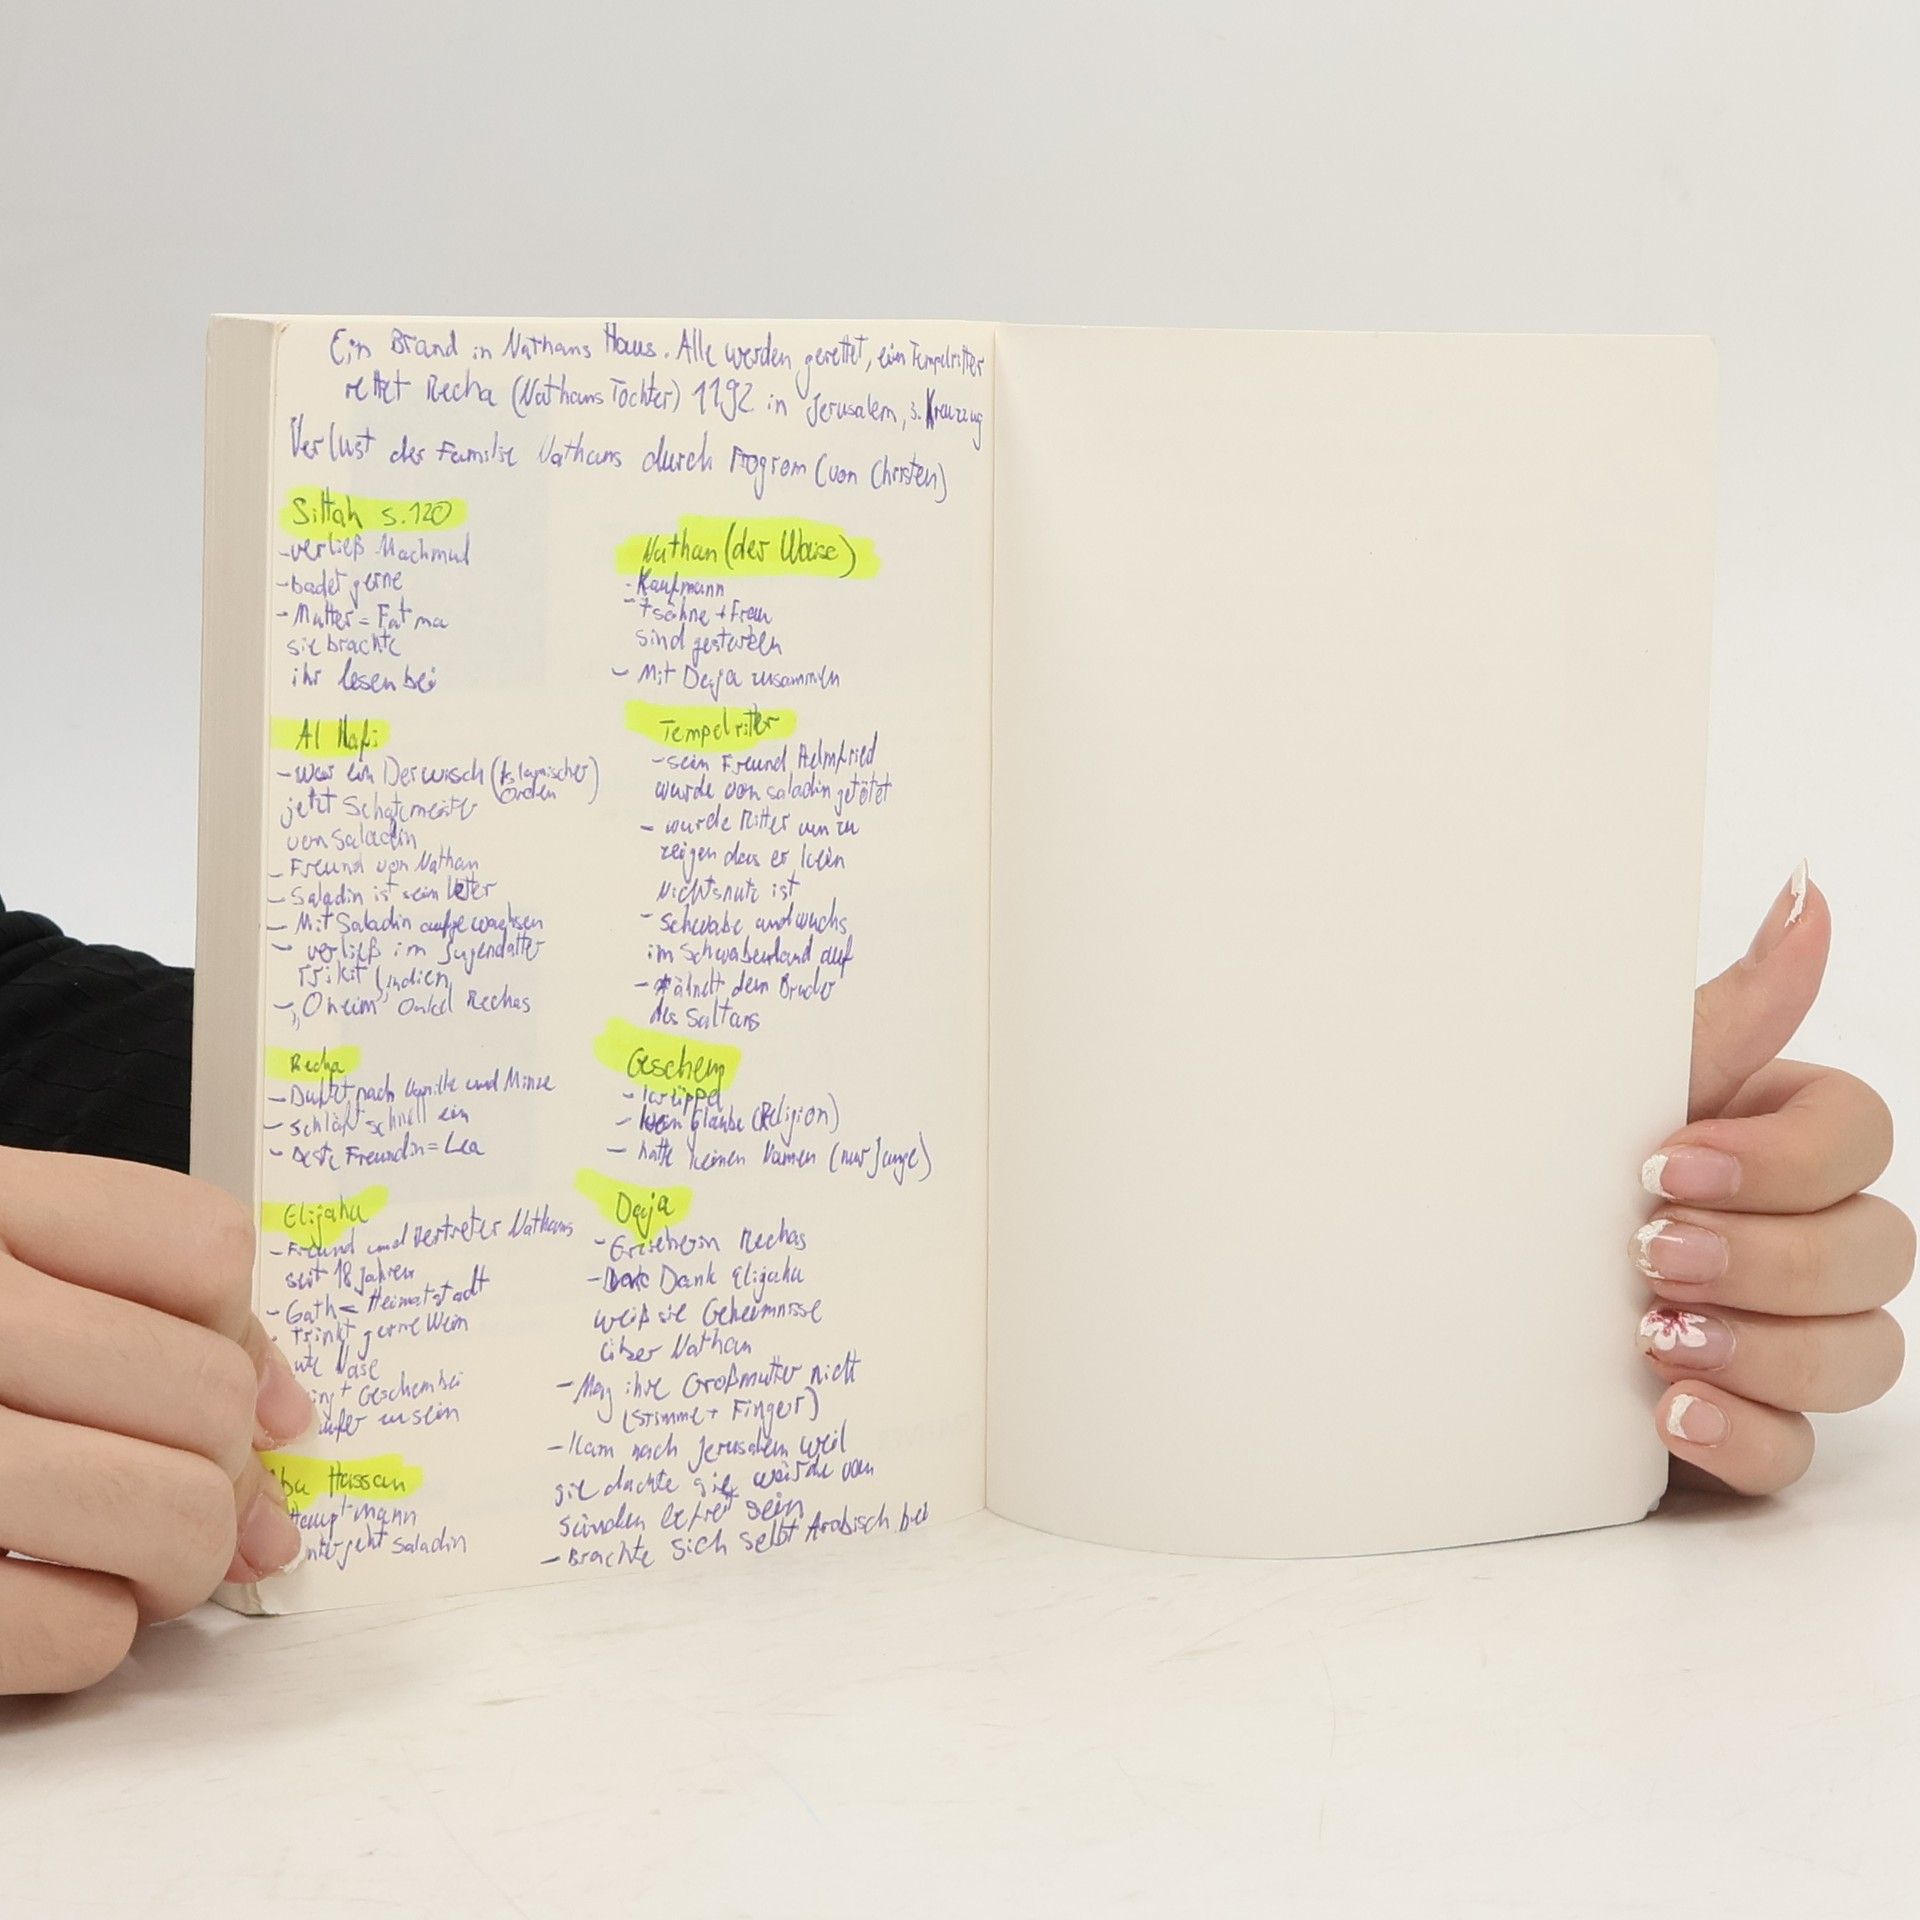 Ein Brand in Nathans Haus. Alle werden gerettet, ein Tempelritter
rettet Recha (Nathans Tochter) 1192 in Jerusalem, 3. Kreuzzug
Verlust der Familie Nathans durch Progrom (von Christen)
Sittah S.120
-verließ Machmud
-badet gerne
-Mutter = Fatma
sie brachte
ihr lesen bei
Al Hafi
-War ein Derwisch (Islamischer
Orden)
jetzt Schatzmeister
von Saladin
-Freund von Nathan
-Saladin ist sein Vetter
-Mit Saladin aufgewachsen
-verließ im Jugendalter
-„Oheim" Onkel Rechas
Recha
-Duftet nach Vanille und Minze
-schläft schnell ein
-beste Freundin = Lea
Elijahu
-Freund und Vertreter Nathans
seit 18 Jahren
-Gath = Heimatstadt
trinkt gerne Wein
Nase
Geschem bei
zu sein
Hassan
Hauptmann
Saladin
Nathan (der Waise)
-Kaufmann
-7 söhne + Frau
sind gestorben
-Mit Daja zusammen
Tempelritter
-sein Freund Helmfried
wurde von Saladin getötet
-wurde Ritter um zu
zeigen das er kein
Nichtsnutz ist
-Schwabe und wuchs
im Schwabenland auf
-ähnelt dem Bruder
des Sultans
Geschem
-krüppel
-kein Glaube (Religion)
-hatte keinen Namen (nur Junge)
Daja
-Erzieherin Rechas
-Dank Elijahu
weiß sie Geheimnisse
über Nathan
-Mag ihre Großmutter nicht
(Stimme + Finger)
-Kam nach Jerusalem weil
sie dachte sie würde von
sünden befreit sein
-Brachte sich selbt Arabisch bei